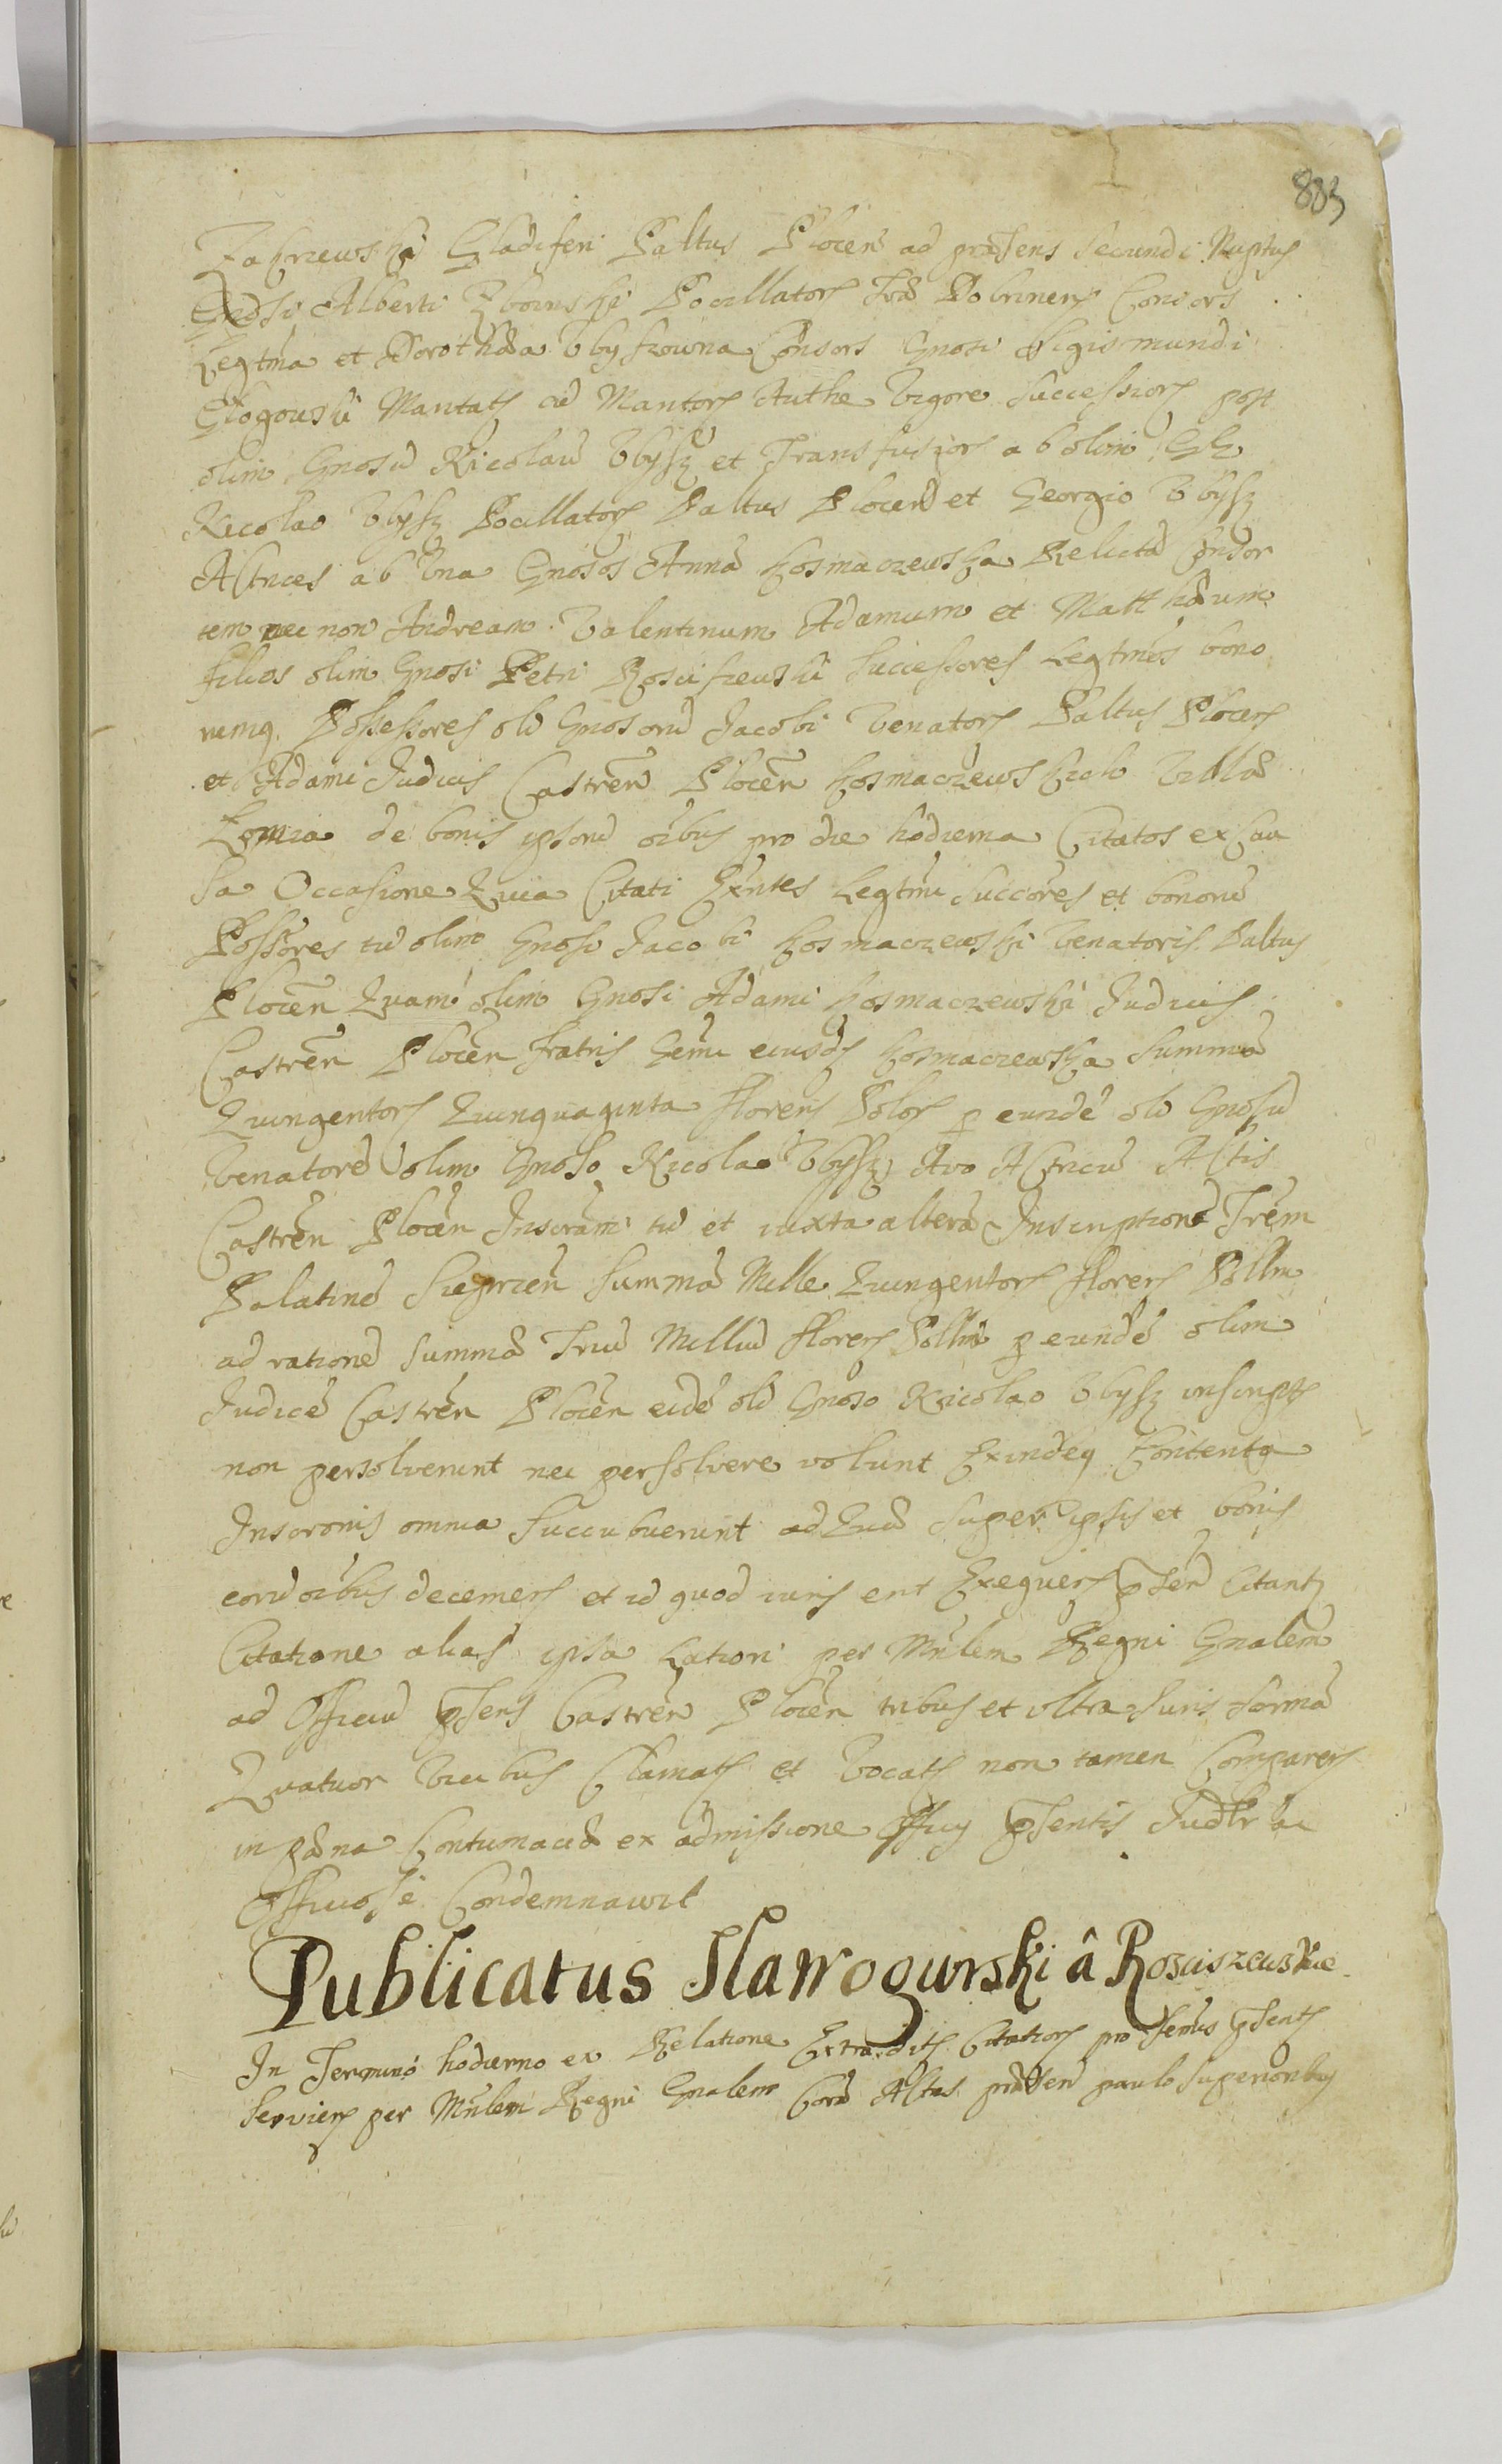 883
Zakrzewski Gladiferi Paltus Plocen ad præsens secundi Nuptus
Gnosi Alberti Zboinski Pocillatoris Træ Dobrinen Consors
Legtma et Dorothæa Ubyszowna Consors Gnosi Sigismundi
Glogowski Maritatę cū Maritorę Authe Vigore Successiorę post
olim Gnosū Nicolaū Ubysz et Transfusiorę ab olim GG
Nicolao Ubysz Pocillatorę Paltus Plocen et Georgio Ubysz
Actrices ab Una Gnosos Annā Kosmaczewska Relictā Consor
tem nec non Andream Valentinum Adamum et Matthæum
filios olim Gnosi Petri Rosciszewski Successores Legtmos bono
rumq. Possessores olī Gnosorū Jacobi Venatorę Paltus Plocen
et Adami Judicis Castren Plocen Kosmaczewskich Villæ
Lomia de bonis ipsorū oibus pro die hodierna Citatos ex Cau
sa Occasione Quia Citati Exntes Legtmi Succores et bonorū
Possores tū olim Gnosi Jacobi Kosmaczewski Venatoris Paltus
Plocen Quam olim Gnosi Adami Kosmaczewski Judicis
Castren Plocen fratris Geṁi eiusdę Kosmaczewska Summā
Quingentorę Quinquaginta florenę Polorę p eundē olī Gnosū
Venatorē olim Gnoso Nicolao Ubysz Avo Actricū Actis
Castren Plocen Inscram tū et iuxta alterā Inscriptionē Trem
Palatinō Sieprcen Summā Mille Quingentorę florenę Pollm
ad rationē Summæ Triū Milliū florenę Pollm p eundē olim
Judicē Castren Plocen eidē olī Gnoso Nicolao Ubysz inscriptę
non persolverunt nec persolvere volunt Exindeq Contenta
Inscronis omnia Succubuerunt ad Quæ super ipsis et bonis
eorū oibus decernenę et id quod iuris erit Exequenę psen Citantę
Citatione alias ipsa Latiori per Mnlem Regni Gnalem
ad Officiū psens Castren Plocen tribus et ultra Juris formā
Quatuor Vicibus Clamatę et Vocatę non tamen Comparenę
in pæna Contumaciæ ex admissione Officy psentis Judlr ac
Officiose Condemnavit
Publicatus Slawogurski â Rosciszewskie
In Termino hodierno ex Relatione Extraditę Citatiorę pro Temis psentę
Servienę per Mnlem Regni Gnalem Corā Actis præsen paulo superioribus